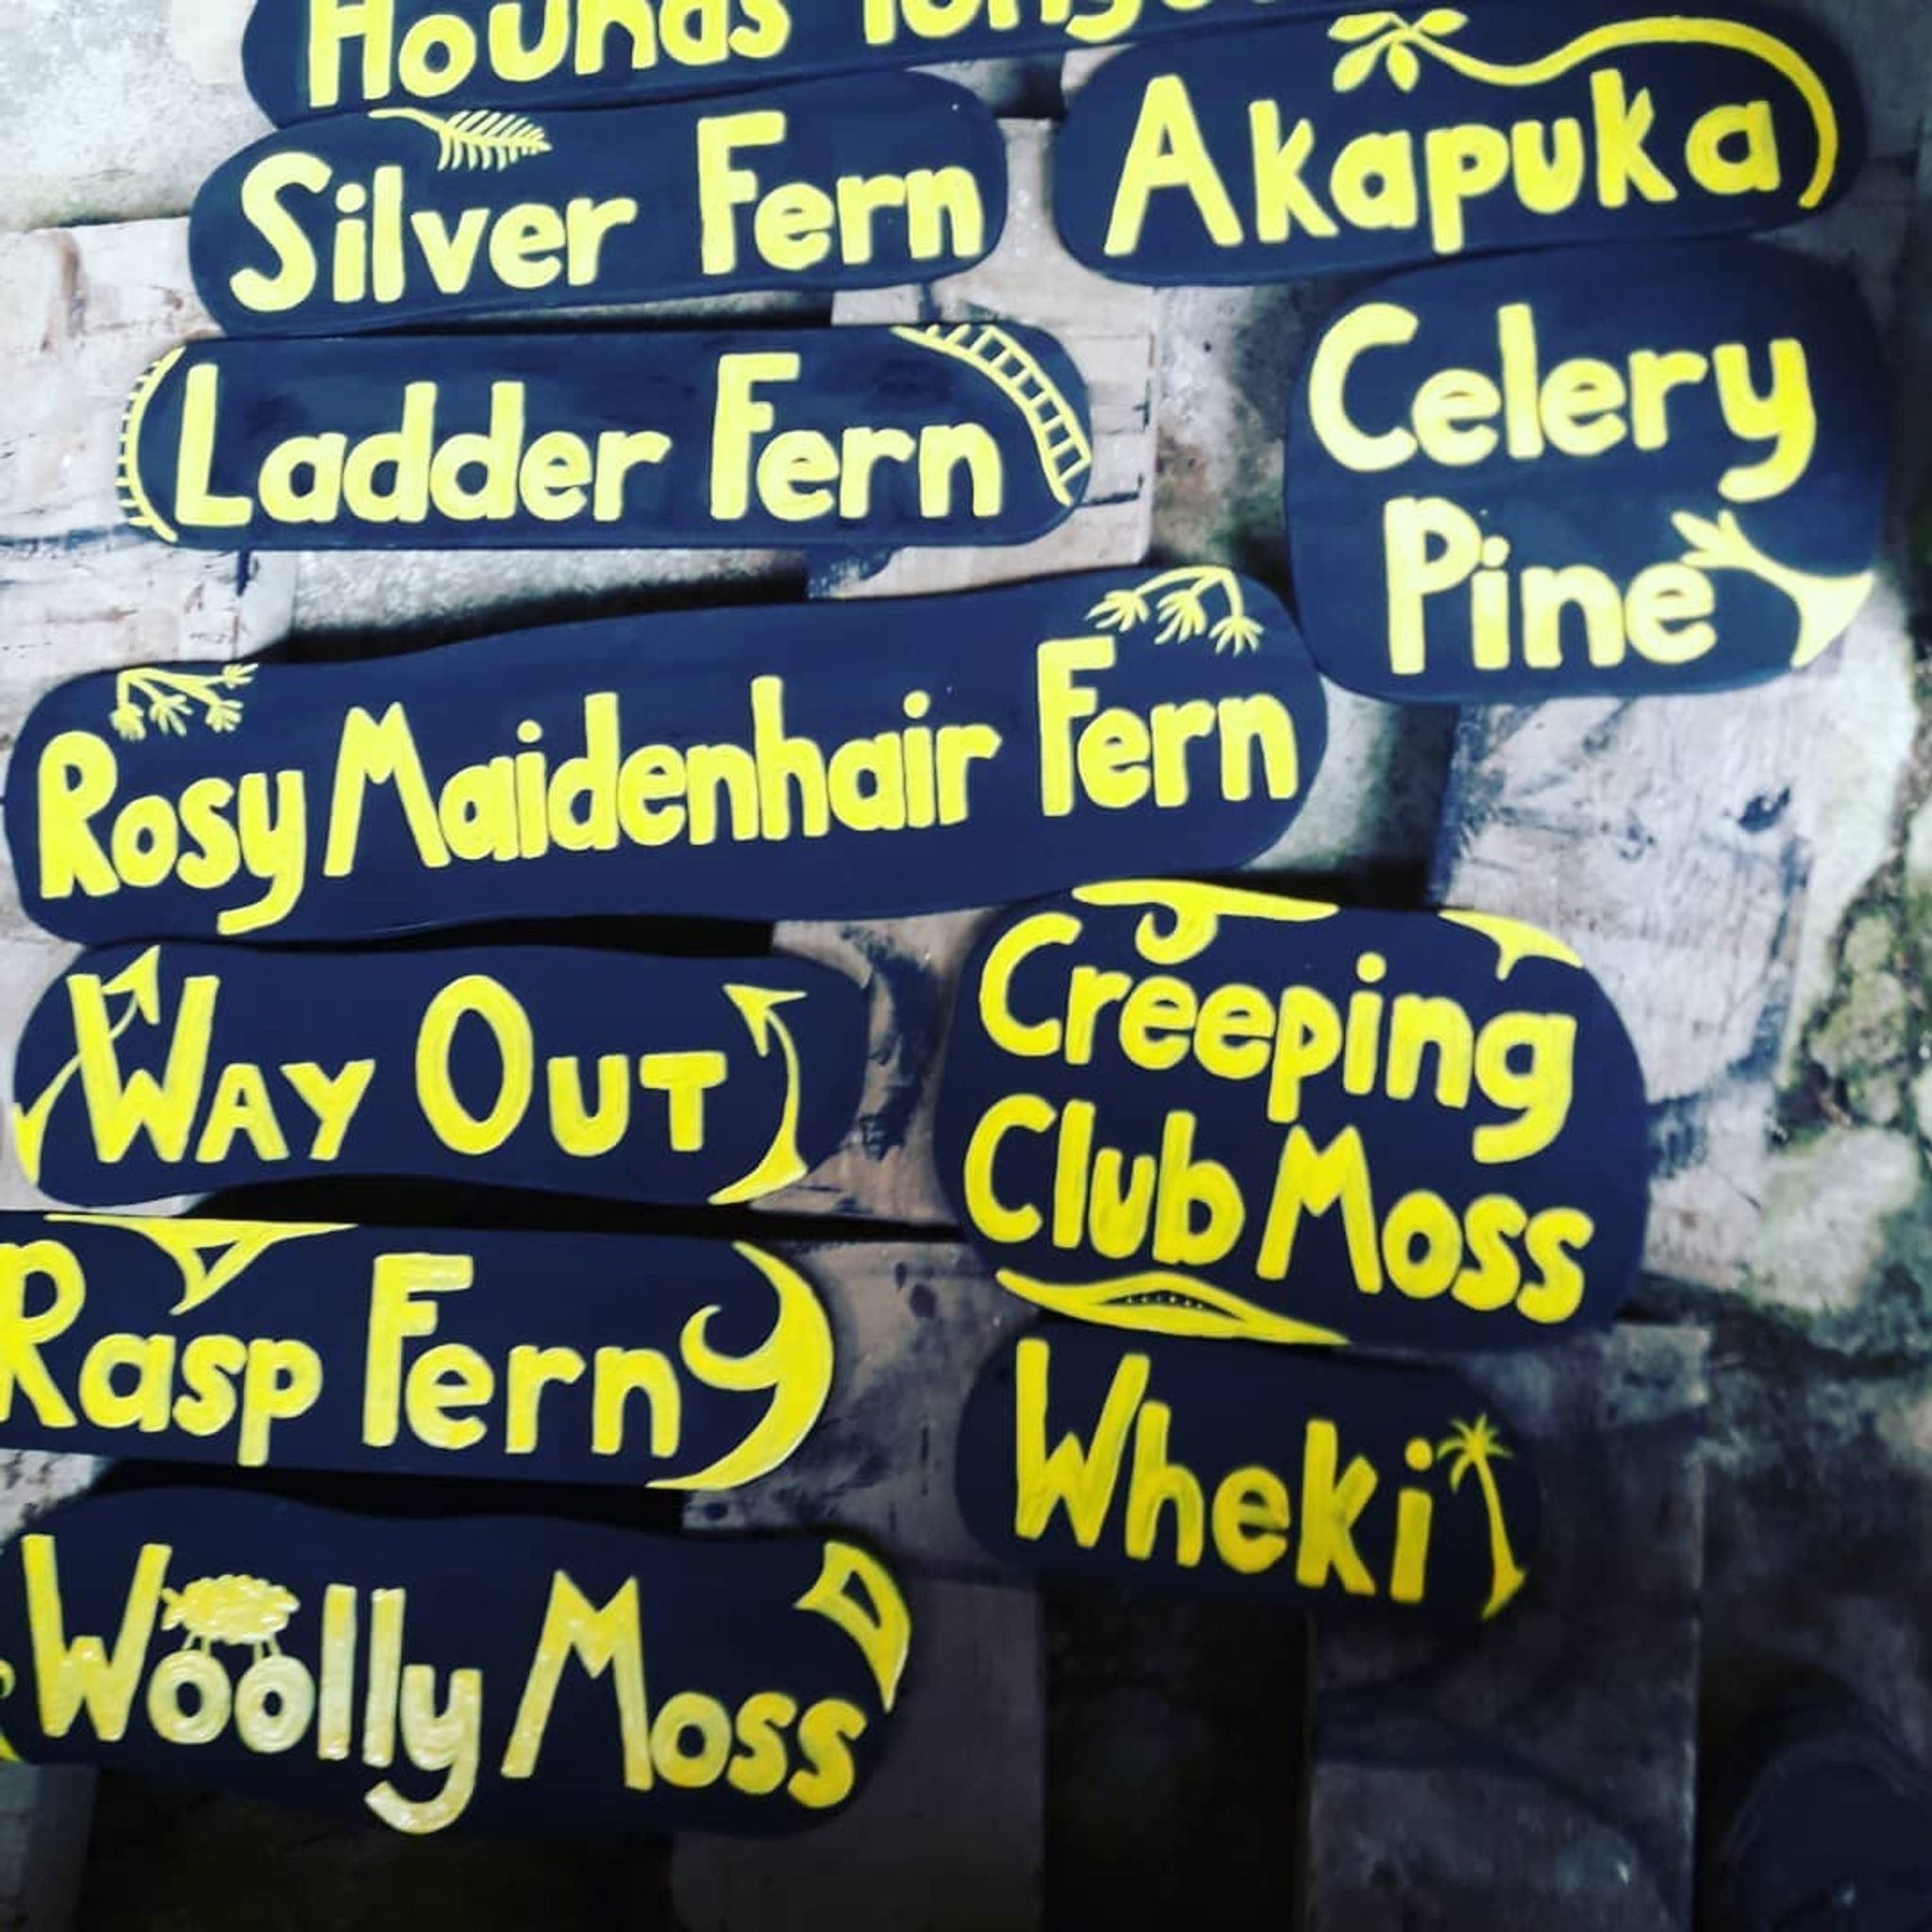 Hounds Tongue
Silver Fern
Akapuka
Ladder Fern
Celery
Pine
Rosy Maidenhair Fern
Way Out
Creeping
Club Moss
Rasp Fern
Wheki
Woolly Moss